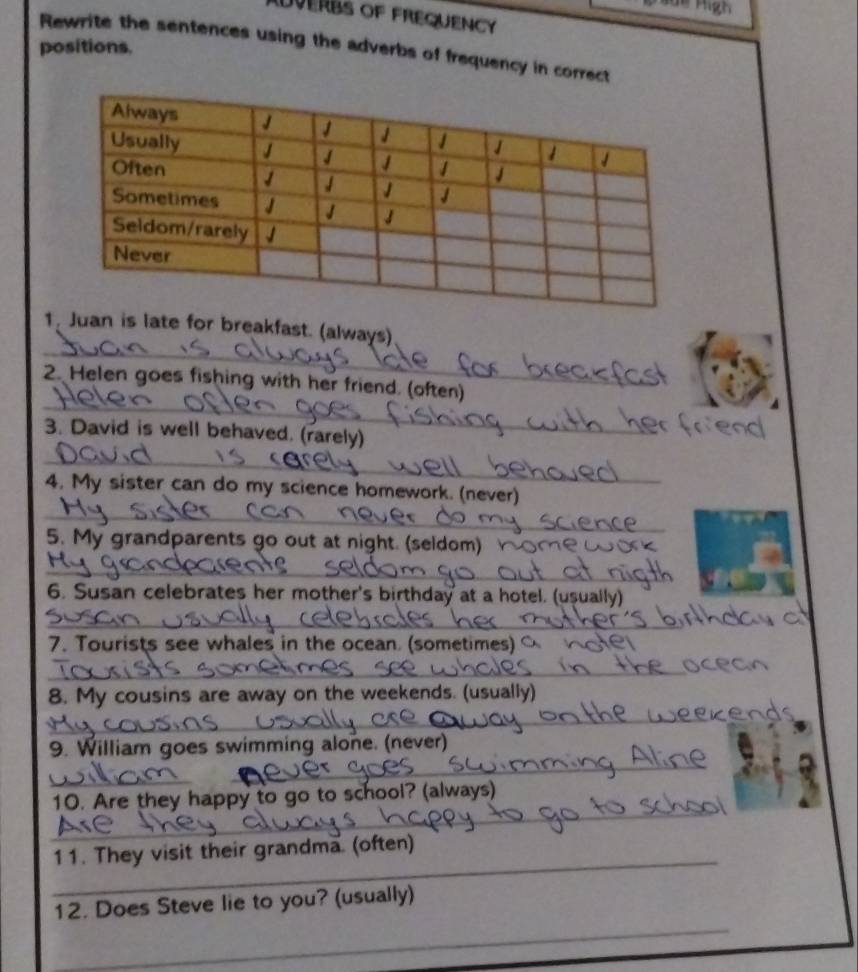 ADVERBS OF FREQUENCY
High
Rewrite the sentences using the adverbs of frequency in correct
positions.
Always
Usually
Often
Sometimes
Seldom/rarely
Never
1. Juan is late for breakfast. (always)
Juan is always late for breakfast
2. Helen goes fishing with her friend. (often)
Helen often goes fishing with her friend
3. David is well behaved. (rarely)
David is rarely well behaved
4. My sister can do my science homework. (never)
My sister can never do my science
5. My grandparents go out at night. (seldom) homework
My grandparents seldom go out at nigth
6. Susan celebrates her mother's birthday at a hotel. (usually)
Susan usually celebrates her mother's birthday at
7. Tourists see whales in the ocean. (sometimes) a hotel
Tourists sometimes see whales in the ocean
8. My cousins are away on the weekends. (usually)
My cousins usually are away on the weekends
9. William goes swimming alone. (never)
William never goes swimming Aline
10. Are they happy to go to school? (always)
Are they always happy to go to school
11. They visit their grandma. (often)
12. Does Steve lie to you? (usually)